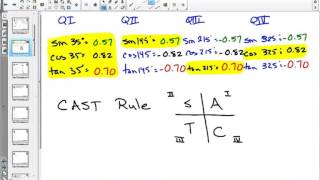 QI QII QIII QIV
sin 35°= 0.57 sin 145°= 0.57 sin 215°= -0.57 sin 325°= -0.57
cos 35°= 0.82 cos 145°= -0.82 cos 215°= -0.82 cos 325°= 0.82
tan 35°= 0.70 tan 145°= -0.70 tan 215°= 0.70 tan 325°= -0.70
CAST Rule II S A I
III T C IV